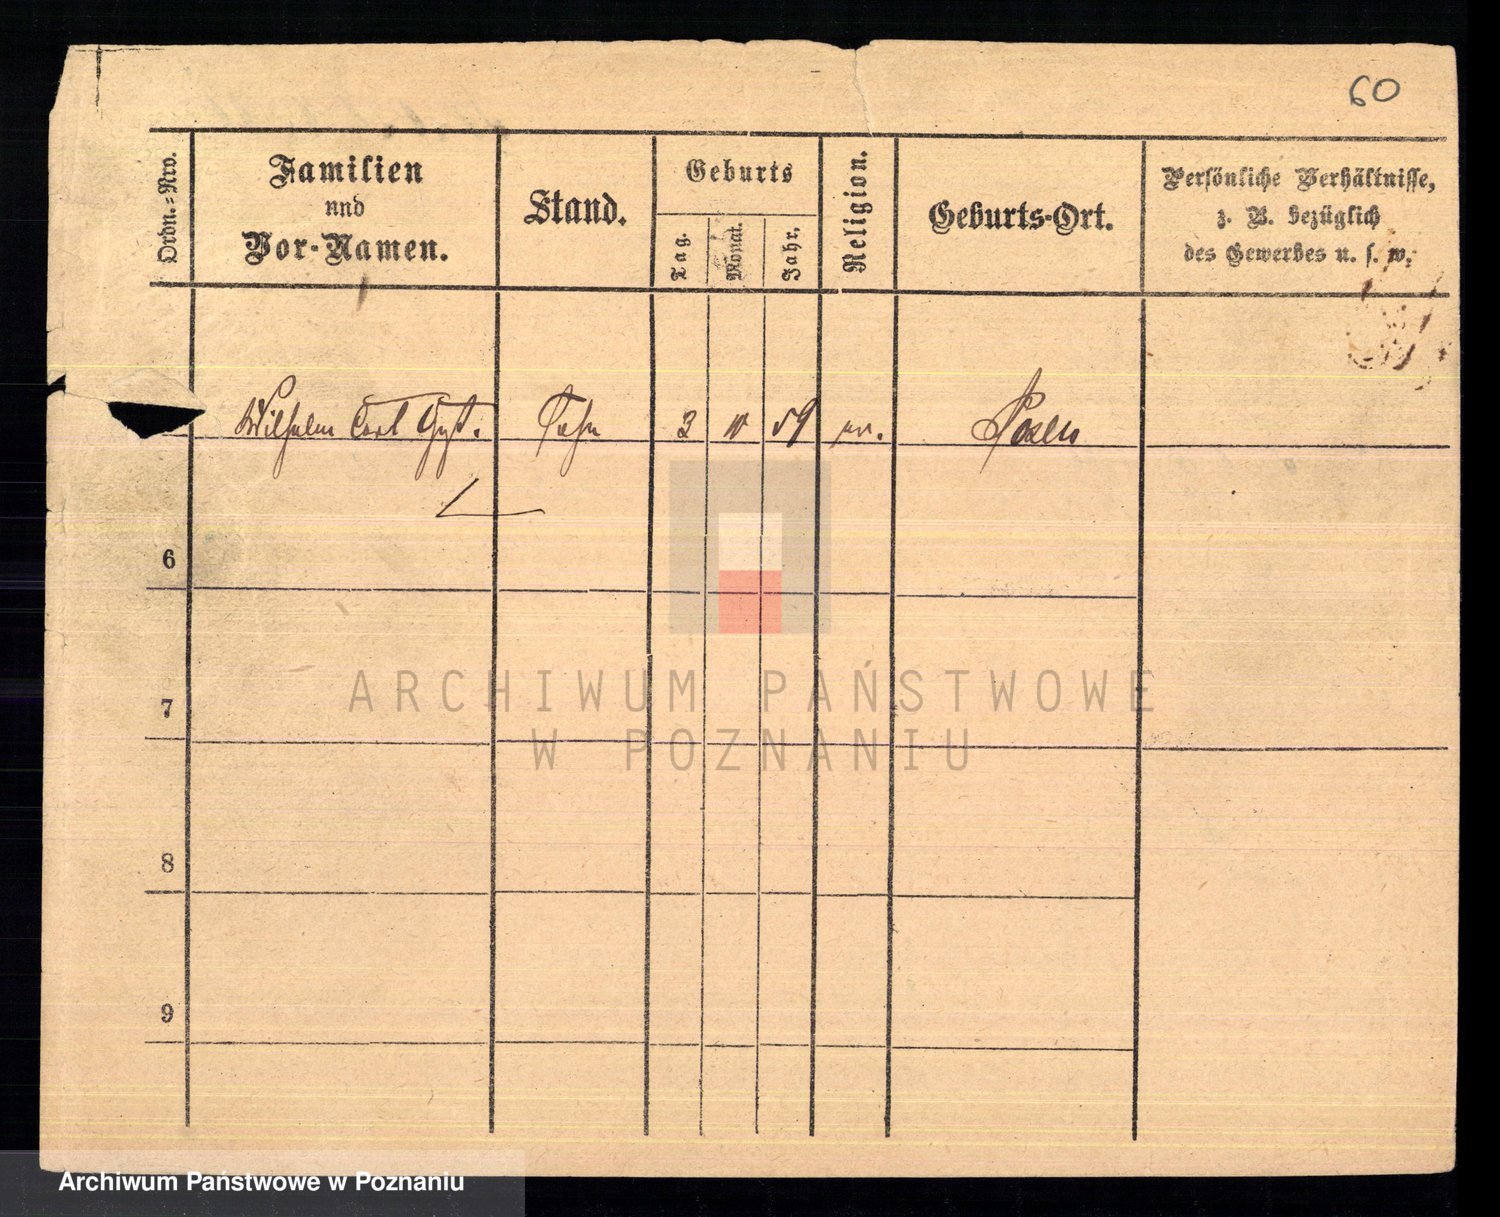 60
Ordn.-Nro.
Familien
und
Vor-Namen.
Stand.
Geburts
Tag.
Monat.
Jahr.
Religion.
Geburts-Ort.
Persönliche Verhältnisse,
z. B. bezüglich
des Gewerbes u. s. w.
Wilhelm Carl Sohn 3 59 Posen
6
7
8
9
ARCHIWUM PAŃSTWOWE
W POZNANIU
Archiwum Państwowe w Poznaniu